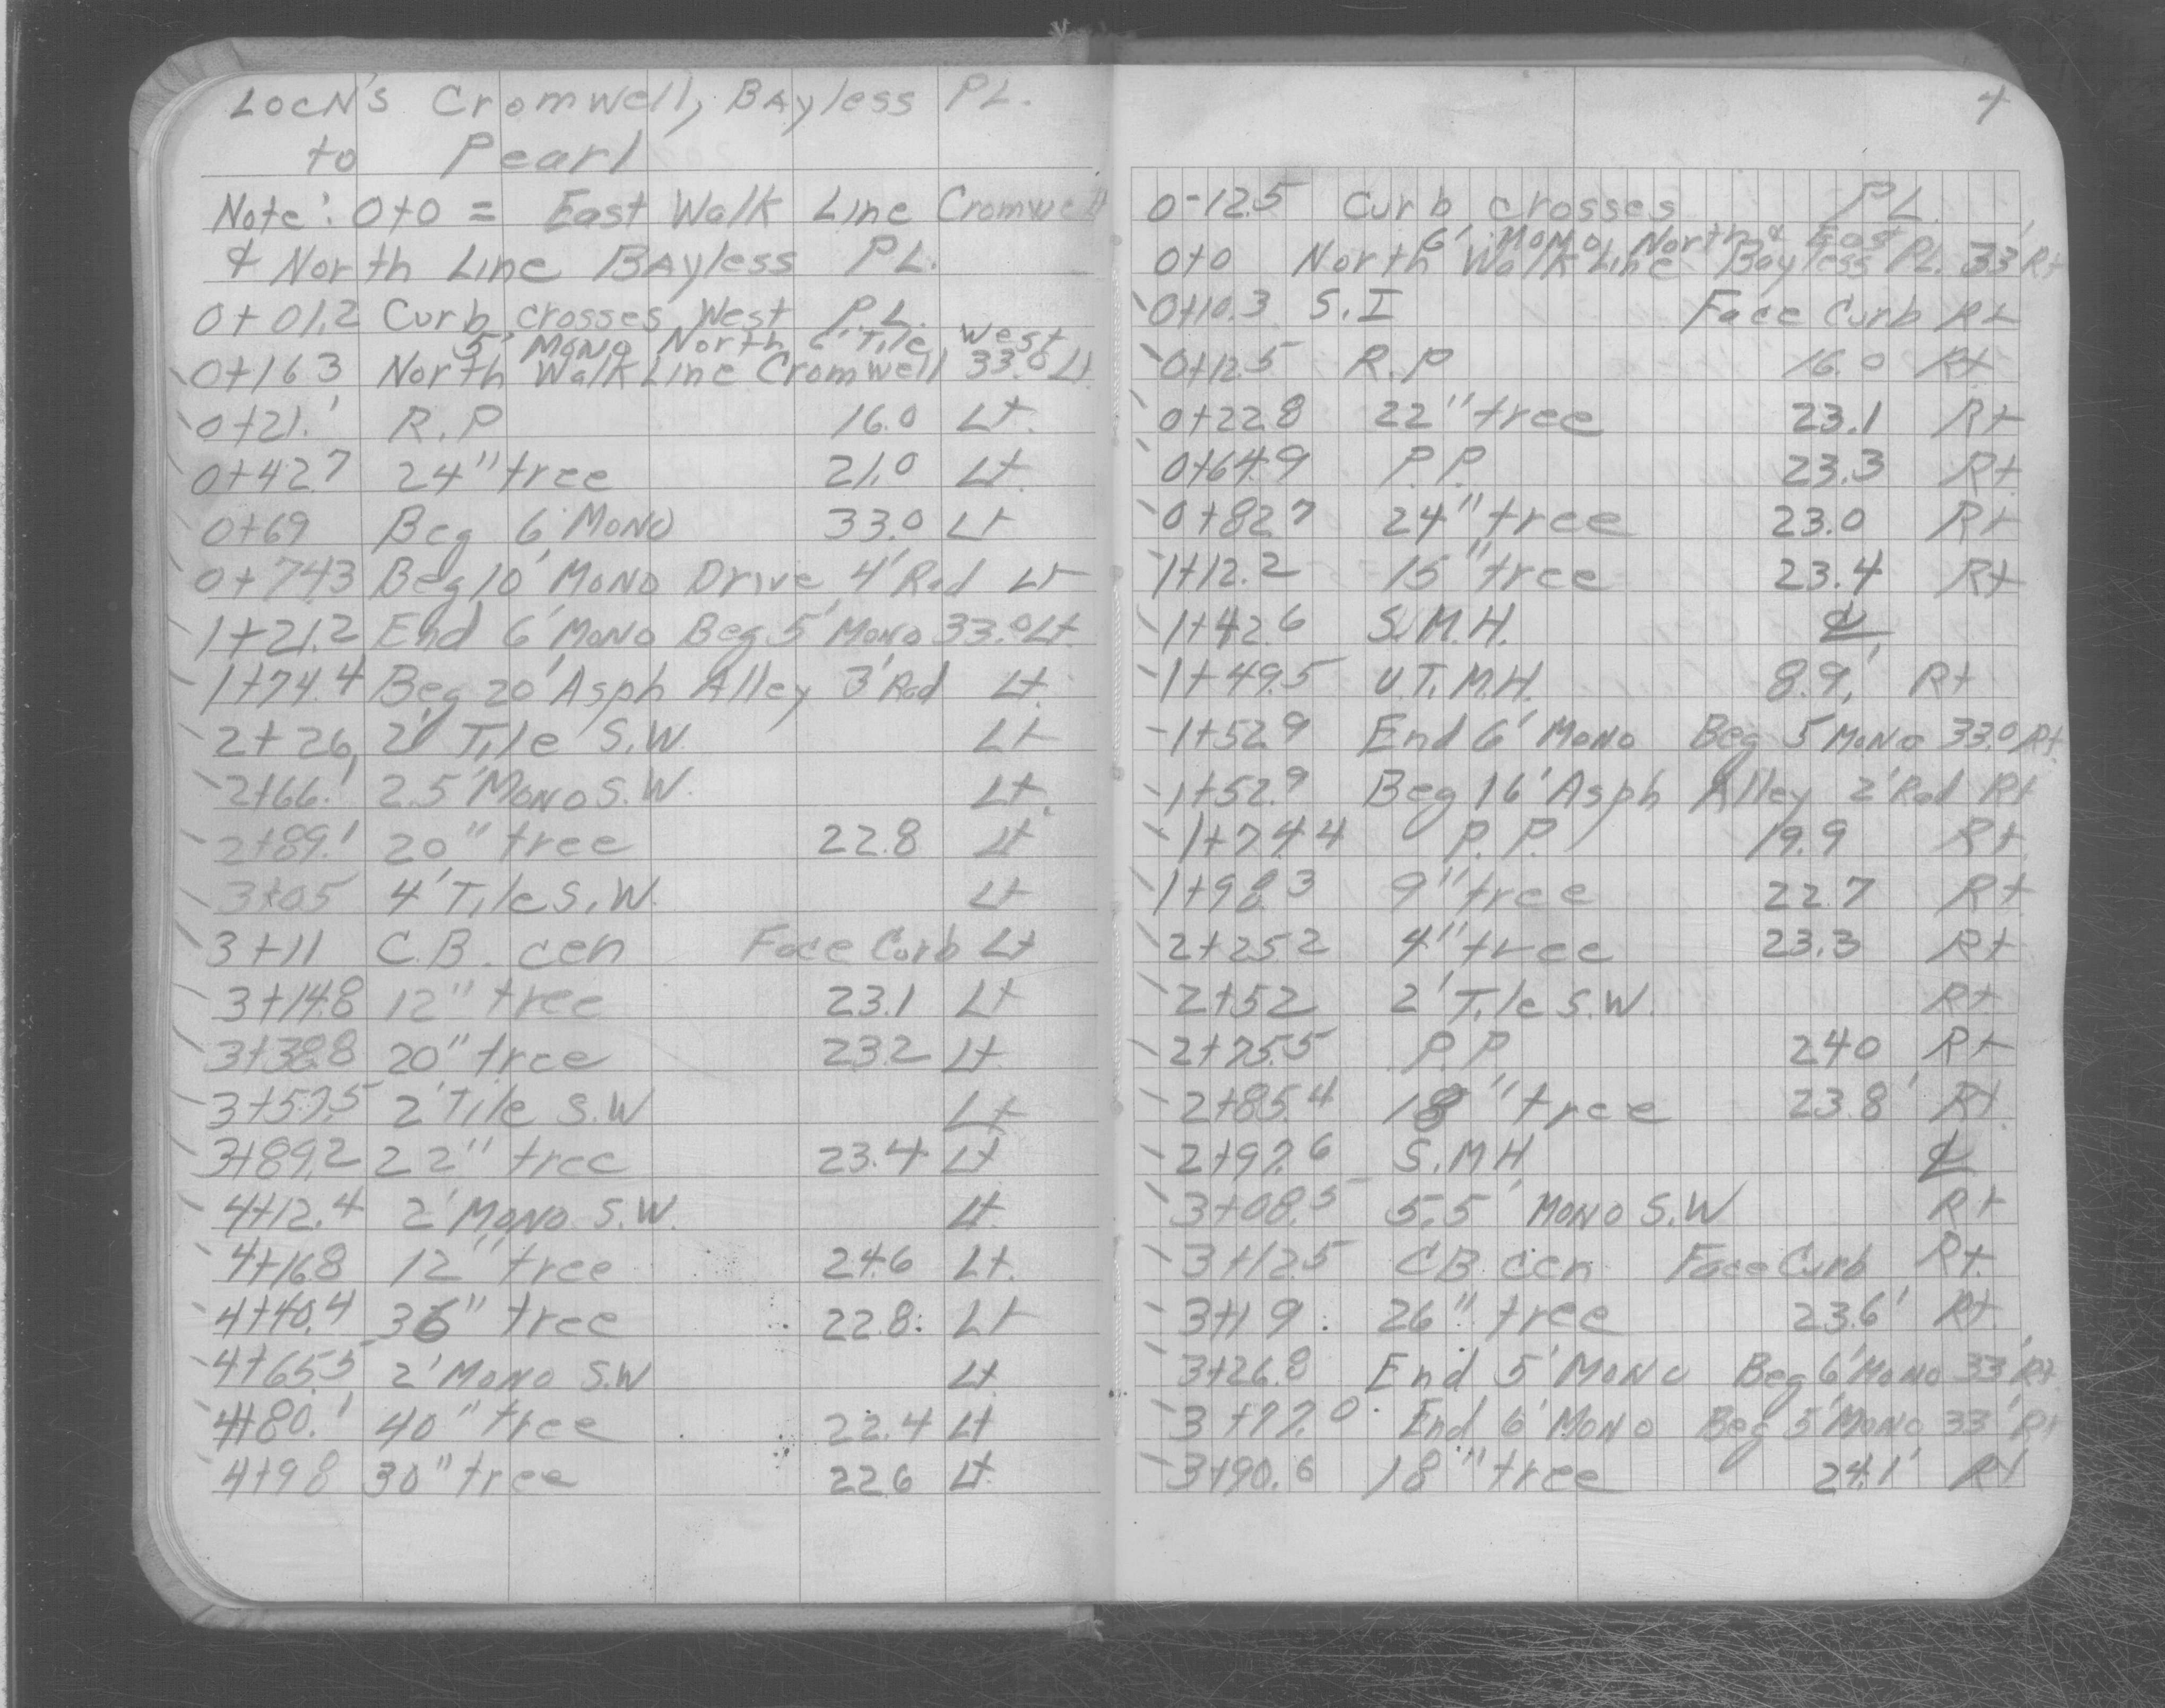 LOCN's Cromwell, Bayless PL.
to Pearl
Note: 0+0 = East Walk Line Cromwell
& North Line Bayless PL.
0+01.2 Curb crosses West P.L.
5' Mono North 6' Tile West
0+16.3 North Walk Line Cromwell 33.0 Lt
0+21.1 R.P 16.0 Lt.
0+42.7 24" tree 21.0 Lt.
0+69 Beg 6' Mono 33.0 Lt
0+74.3 Beg 10' Mono Drive 4' Rad Lt
1+21.2 End 6' Mono Beg 5' Mono 33.0 Lt.
1+74.4 Beg 20' Asph Alley 3' Rad Lt.
2+26, 2' Tile S.W. Lt
2+66.1 2.5' Mono S.W. Lt.
2+89.1 20" tree 22.8 Lt
3+05 4' Tile S.W. Lt
3+11 C.B. cen Face Curb Lt
3+14.8 12" tree 23.1 Lt
3+38.8 20" tree 23.2 Lt.
3+57.5 2' Tile S.W Lt
3+89.2 22" tree 23.4 Lt
4+12.4 2' Mono S.W. Lt.
4+16.8 12" tree 24.6 Lt.
4+40.4 36" tree 22.8 Lt
4+65.5 2' Mono S.W Lt.
4+80.1 40" tree 22.4 Lt
4+98 30" tree 22.6 Lt.
4
0-12.5 Curb crosses P.L.
6' Mono North & East
0+0 North Walk Line Bayless PL. 33' Rt
0+10.3 S.I Face Curb Rt
0+12.5 R.P 16.0 Rt
0+22.8 22" tree 23.1 Rt
0+64.9 P.P. 23.3 Rt.
0+82.7 24" tree 23.0 Rt
1+12.2 15" tree 23.4 Rt
1+42.6 S.M.H. ℄
1+49.5 U.T.M.H. 8.9' Rt
1+52.9 End 6' Mono Beg 5 Mono 33.0 Rt.
1+52.9 Beg 16' Asph Alley 2' Rad Rt
1+74.4 P.P. 19.9 Rt
1+98.3 9" tree 22.7 Rt
2+25.2 4" tree 23.3 Rt
2+52 2' Tile S.W. Rt
2+75.5 P.P. 24.0 Rt
2+85.4 18" tree 23.8' Rt
2+97.6 S.M.H ℄
3+08.5 5.5' Mono S.W Rt
3+12.5 CB cen Face Curb Rt.
3+19. 26" tree 23.6' Rt
3+26.8 End 5' Mono Beg 6' Mono 33' Rt.
3+77.0 End 6' Mono Beg 5' Mono 33' Rt
3+90.6 18" tree 24.1' Rt